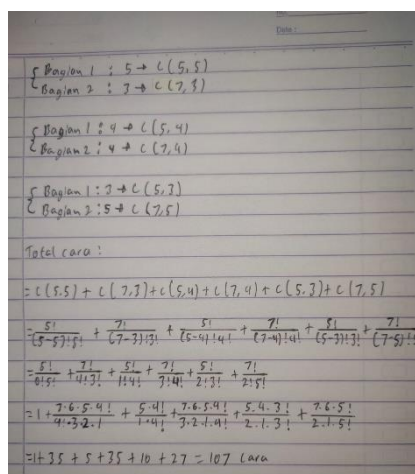 Date :
Bagian 1 : 5 → C(5,5)
Bagian 2 : 3 → C(7,3)
Bagian 1 : 4 → C(5,4)
Bagian 2 : 4 → C(7,4)
Bagian 1 : 3 → C(5,3)
Bagian 2 : 5 → C(7,5)
Total cara :
= C(5,5) + C(7,3) + C(5,4) + C(7,4) + C(5,3) + C(7,5)
= 5!/(5-5)!5! + 7!/(7-3)!3! + 5!/(5-4)!4! + 7!/(7-4)!4! + 5!/(5-3)!3! + 7!/(7-5)!
= 5!/0!5! + 7!/4!3! + 5!/1!4! + 7!/3!4! + 5!/2!3! + 7!/2!5!
= 1 + 7.6.5.4!/4!.3.2.1 + 5.4!/1.4! + 7.6.5.4!/3.2.1.4! + 5.4.3!/2.1.3! + 7.6.5!/2.1.5!
= 1 + 35 + 5 + 35 + 10 + 27 = 107 cara